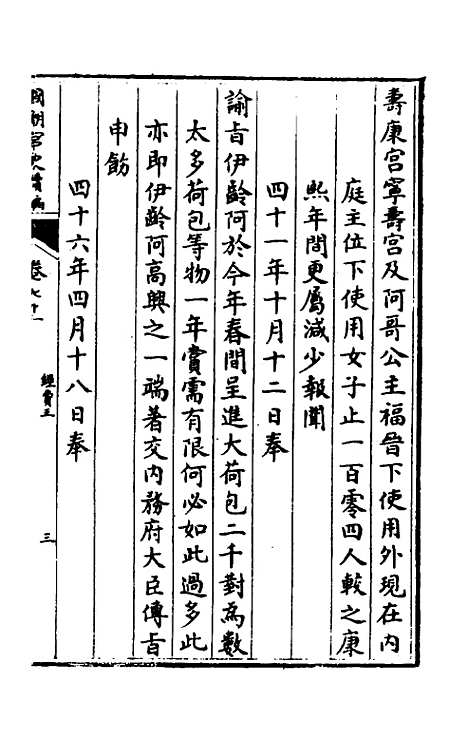 壽康宮寧壽宮及阿哥公主福晉下使用外現在內
庭主位下使用女子止一百零四人較之康
熙年間更屬減少報聞
四十一年十月十二日奉
諭旨伊齡阿於今年春間呈進大荷包二千對為數
太多荷包等物一年賞需有限何必如此過多此
亦即伊齡阿高興之一端著交內務府大臣傳旨
申飭
四十六年四月十八日奉
國朝宮史續編
卷七十
經費三
三